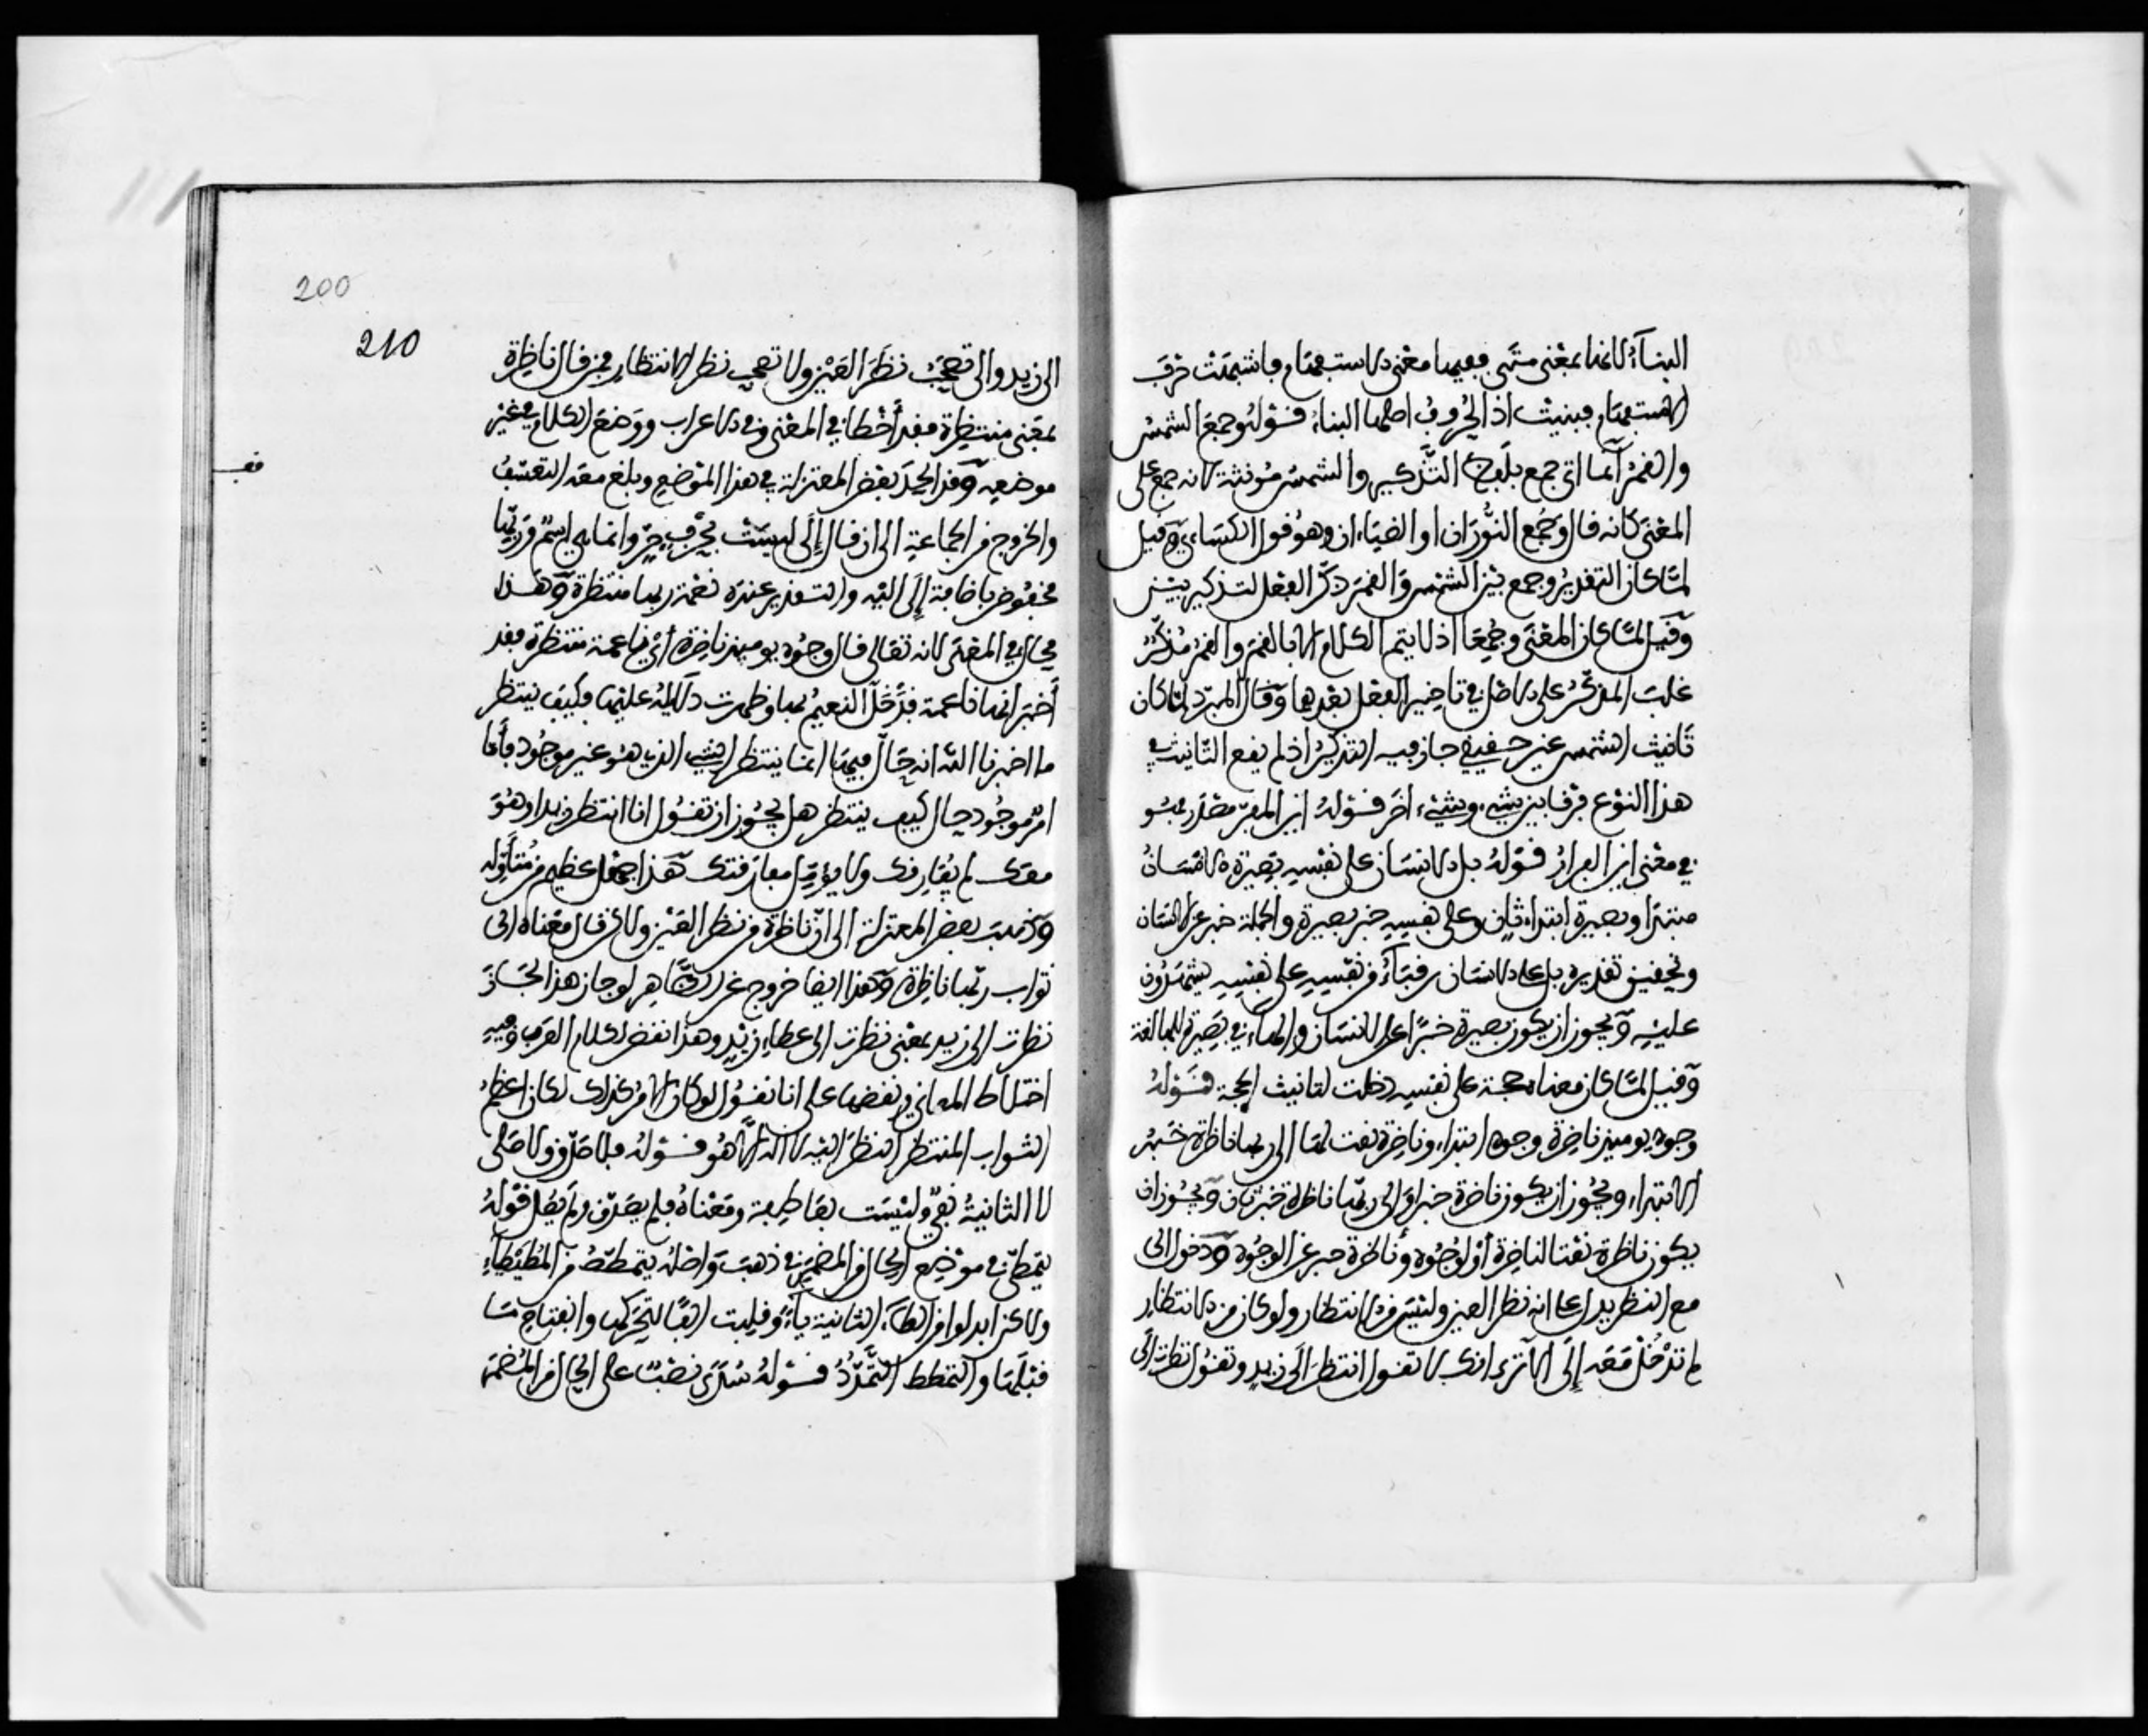 البناء لانها بمعنى متى ففيها معنى الاستفهام فاشبهت حرف
الاستفهام فبنيت اذ الحروف اصلها البناء قوله وجمع الشمس
والقمر انما اتى جمع بلفظ التذكير والشمس مؤنثة لانه حمع على
المعنى كانه قال وجمع النوران او الضياءان وهو قول الكسائي وقيل
لما كان التقدير وجمع بين الشمس والقمر ذكر الفعل لتذكير بين
وقيل لما كان المعنى وجمعا اذ لا يتم الكلام الا بالقمر والقمر مذكر
غلب المذكر على الاصل في تاخير الفعل بعدهما وقال المبرد لما كان
تانيث الشمس غير حقيقي جاز فيه التذكير اذ لم يقع التانيث في
هذا النوع فرقا بين شيء وشيء اخر قوله اين المفر مصدر فهو
في معنى اين الفرار قوله بل الانسان على نفسه بصيرة الانسان
مبتدا وبصيرة ابتداء ثان وعلى نفسه خبر بصيرة والجملة خبر عن الانسان
وتحقيق تقديره بل على الانسان رقباء من نفسه على نفسه يشهدون
عليه ويجوز ان يكون بصيرة خبرا عن الانسان والهاء في بصيرة للمبالغة
وقيل لما كان معناه حجة على نفسه دخلت لتانيث الحجة قوله
وجوه يوميذ ناضرة وجوه ابتداء وناضرة نعت لها الى ربها ناظرة خبر
الابتداء ويجوز ان يكون ناضرة خبرا والى ربها ناظرة خبر ثان ويجوز ان
يكون ناظرة نعتا لناضرة او لوجوه وناضرة خبر عن الوجوه ودخول الى
مع النظر يدل على انه نظر العين وليس من الانتظار ولو كان من الانتظار
لم تدخل معه الى الا ترى انك لا تقول انتظرت الى زيد وتقول نظرت الى
200
210
الى زيد والى تصحب نظر العين ولا تصحب نظر الانتظار فمن قال ناظرة
بمعنى منتظرة فقد أخطا في المعنى وفي الاعراب ووضع الكلام في غير
موضعه وقد الحد بعض المعتزلة في هذا الموضع وبلغ معه التعسف
والخروج من الجماعة الى ان قال إلى ليست بحرف جر وانما هي اسم وربها
مخفوض باضافة إلى اليه والتقدير عنده نعمة ربها منتظرة وهذا
محال في المعنى لانه تعالى قال وجوه يوميذ ناضرة أي ناعمة منتظرة فقد
أخبر انها ناعمة قد حل النعيم بها وظهرت دلائله عليها فكيف ينتظر
ما اخبرنا الله انه حال فيها انما ينتظر الشيء الذي هو غير موجود فأما
امر موجود حال كيف ينتظر هل يجوز ان تقول انا انتظر زيدا وهو
معك لم يفارقك ولا يؤمل مفارقتك هذا جهل عظيم من متأوله
وذهب بعض المعتزلة الى ان ناظرة من نظر العين ولاكن قال معناه الى
ثواب ربها ناظرة وهذا ايضا خروج عن الظاهر لو جاز هذا لجاز
نظرت الى زيد بمعنى نظرت الى عطاء زيد وهذا نقض لكلام العرب وفيه
اختلاط المعاني ونقضها على انا نقول لو كان الامر كذلك لكان اعظم
الثواب المنتظر النظر اليه لا اله الا هو قوله فلا صدق ولا صلى
لا الثانية نفي وليست بعاطفة ومعناه فلم يصدق ولم يصل قوله
يتمطى في موضع الحال من المضمر في ذهب واصله يتمطط من المطيطاء
ولاكن ابدلوا من الطاء الثانية ياء وقلبت الفا لتحركها وانفتاح ما
قبلها والتمطط التمدد قوله سدى نصب على الحال من المضمر